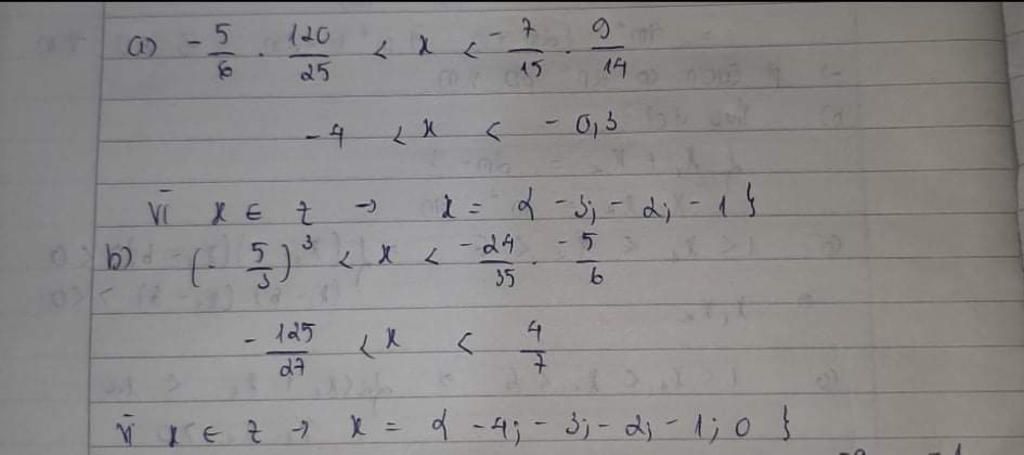 a) -5/6 . 120/25 < x < -7/15 . 9/14
-4 < x < -0,3
Vì x ∈ Z → x = { -3; -2; -1 }
b) (-5/3)³ < x < -24/35 . -5/6
-125/27 < x < 4/7
Vì x ∈ Z → x = { -4; -3; -2; -1; 0 }